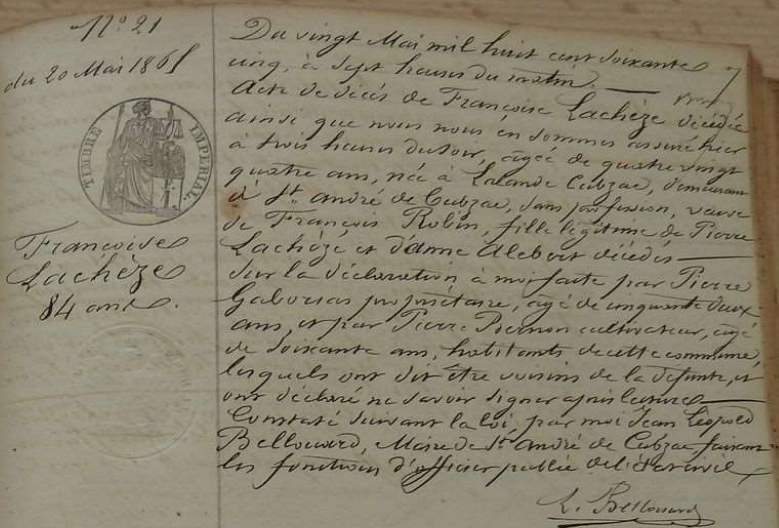 N° 21
du 20 Mai 1865
TIMBRE IMPÉRIAL
Françoise
Lachèze
84 ans.
Du vingt Mai mil huit cent soixante
cinq, à sept heures du matin.
Acte de décès de Françoise Lachèze décédée
ainsi que nous nous en sommes assuré hier
à trois heures du soir, âgée de quatre vingt
quatre ans, née à Lalande Cubzac, demeurant
à St. André de Cubzac, sans profession, veuve
de François Robin, fille légitime de Pierre
Lachèze et dame décédés
Sur la déclaration à moi faite par Pierre
propriétaire, âgé de cinquante deux
ans, et par Pierre cultivateur, âgé
de soixante ans, habitants de cette commune,
lesquels ont dit être voisins de la défunte, et
ont déclaré ne savoir signer après lecture
Constaté suivant la loi, par moi Jean Léopold
Bellouard, Maire de St. André de Cubzac, faisant
les fonctions d'officier public de l'état civil
L. Bellouard